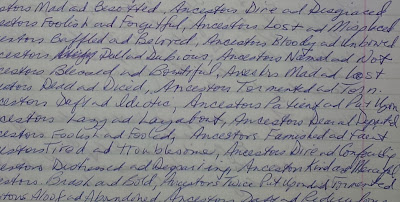 stors Mad ad Besotted, Ancestors Dire ad Disgraced
estors Foolish ad Forgetful, Ancestors Lost ad Misplaced
estors Baffled ad Beloved, Ancestors Bloody ad Unbowed
cestors Dull ad Dubious, Ancestors Named ad Not
cestors Blessed ad Bountiful, Ancestors Mad ad Lost
cestors Dead ad Diced, Ancestors Tormented ad Torn.
cestors Deft ad Idiotic, Ancestors Patient ad Put Upon
cestors Lazy ad Layabout, Ancestors Dear ad
cestors Foolish ad Fooled, Ancestors Famished ad Faust
cestors Tired ad Troublesome, Ancestors Dire ad
cestors Distressed ad Despairing, Ancestors Kind ad Merciful
estors Brash ad Bold, Ancestors Twice Put Upon ad Tormented
stors Aloof ad Abandoned, Ancestors